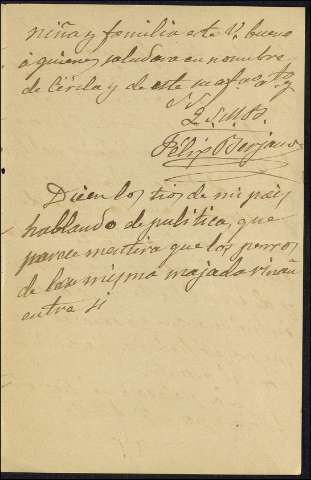 niña y familia este V. bueno
á quienes saludara en nombre
de Cécila y de este su af.
Q. S. M. B.
Félix Berjano
Dicen los tios de mi pais
hablando de politica, que
parece mentira que los perros
de la misma majada riñan
entre si